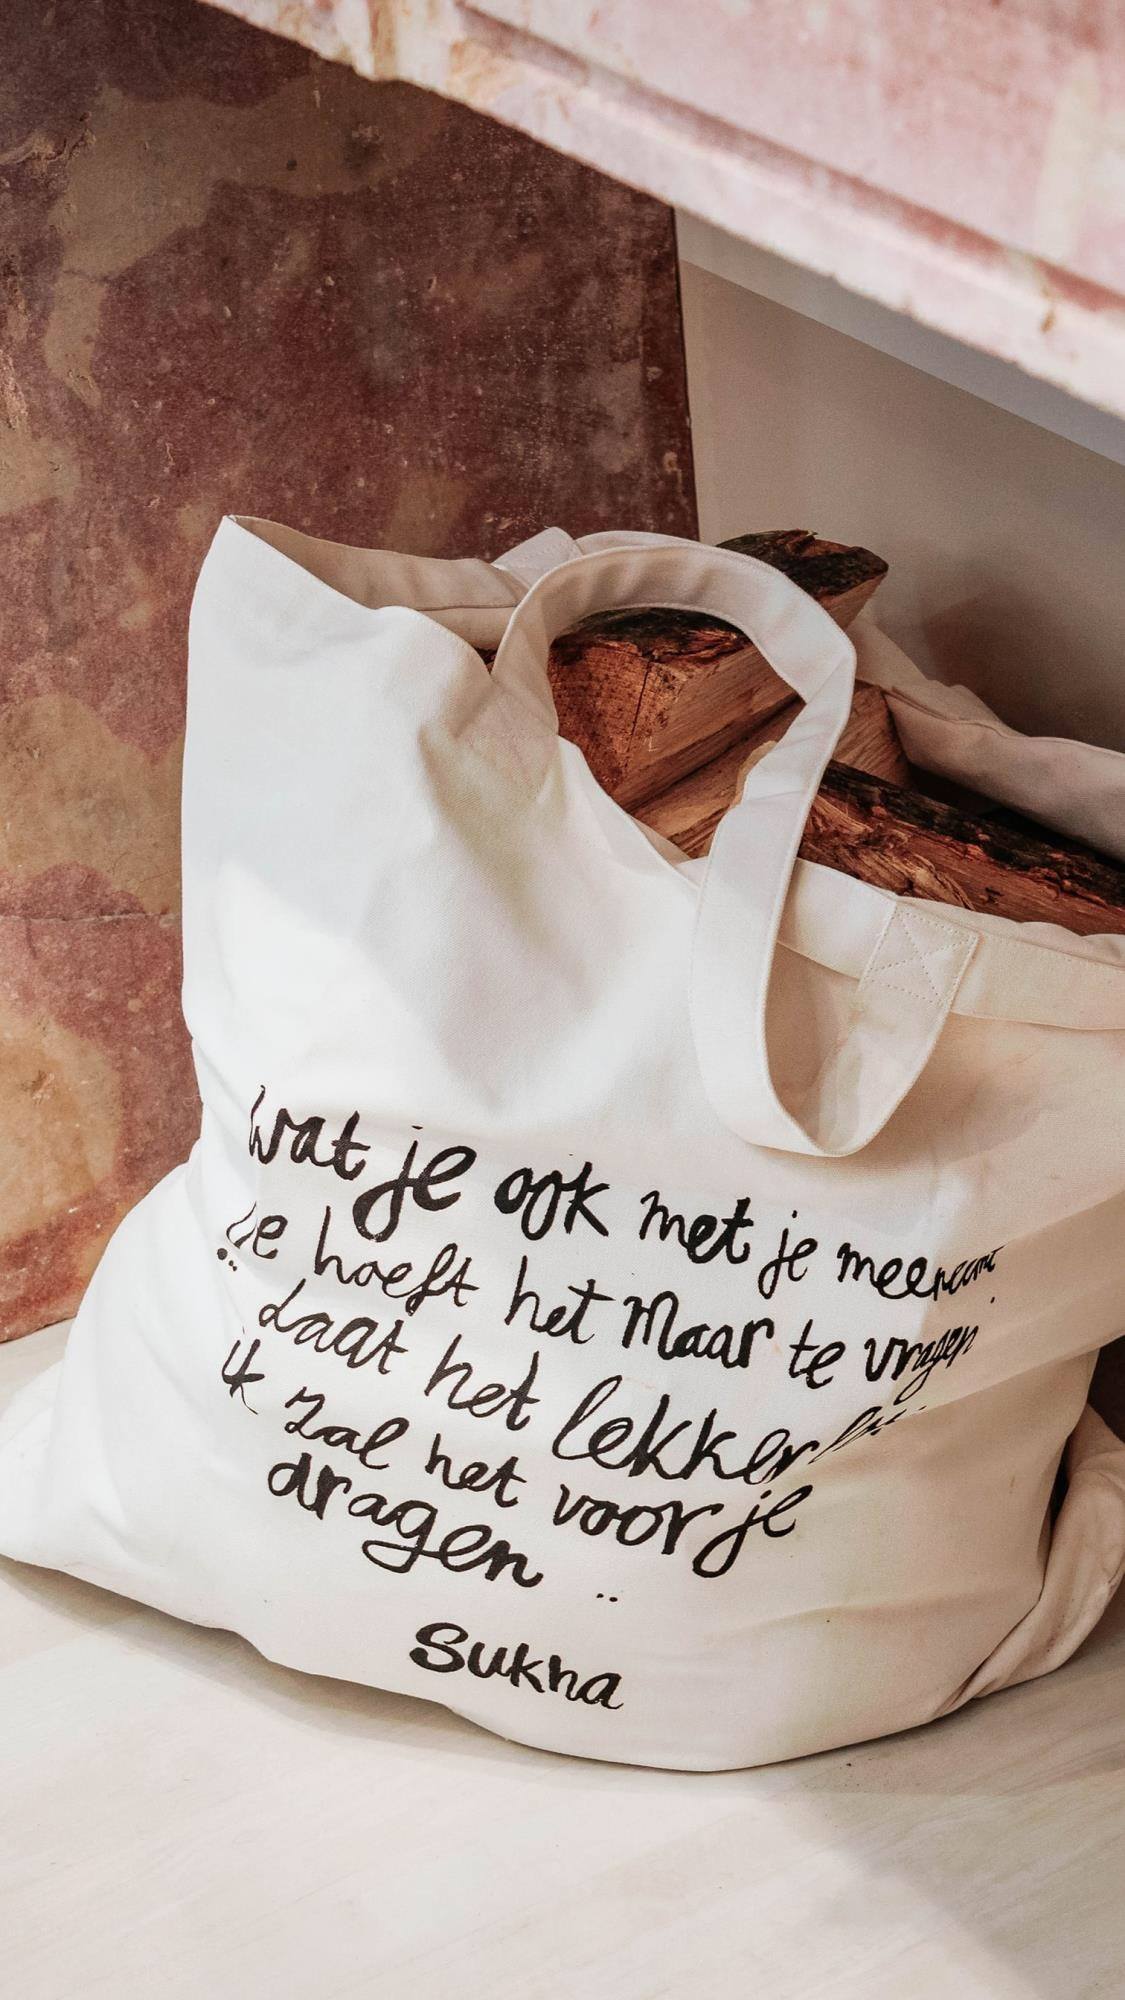 wat je ook met je mee
Je hoeft het maar te vragen
.. Laat het lekker
ik zal het voor je
dragen ..
Sukha